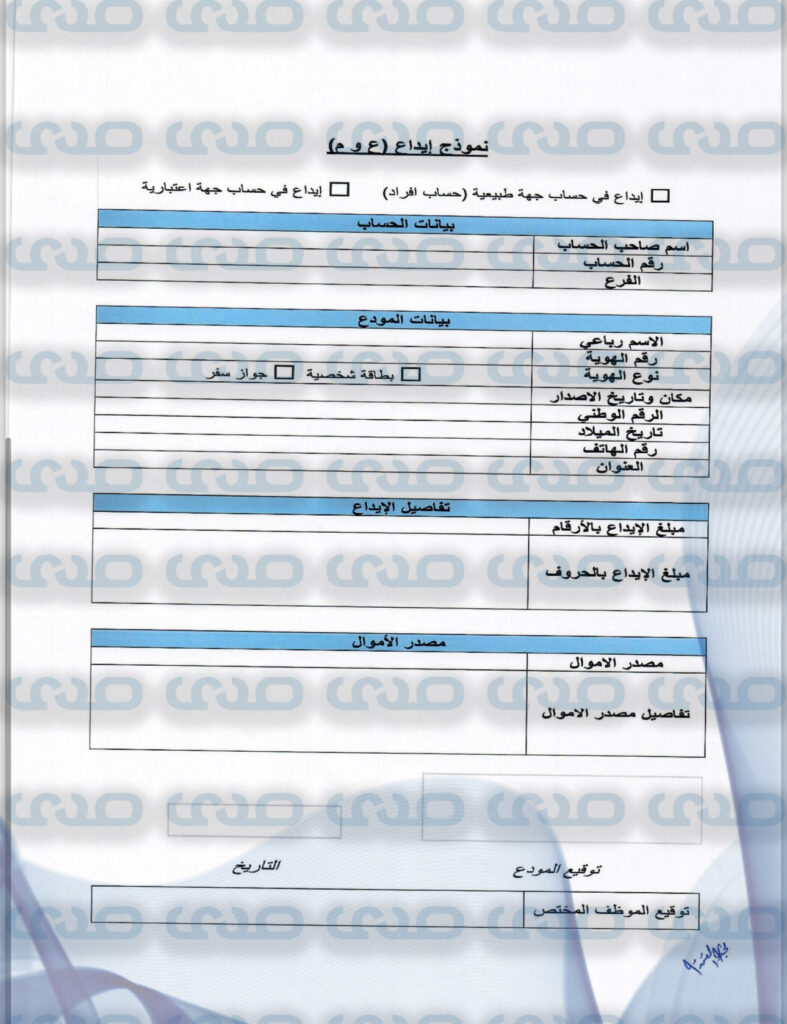 نموذج إيداع (ع و م)
إيداع في حساب جهة طبيعية (حساب افراد) إيداع في حساب جهة اعتبارية
بيانات الحساب
اسم صاحب الحساب
رقم الحساب
الفرع
بيانات المودع
الاسم رباعي
رقم الهوية
نوع الهوية بطاقة شخصية جواز سفر
مكان وتاريخ الاصدار
الرقم الوطني
تاريخ الميلاد
رقم الهاتف
العنوان
تفاصيل الإيداع
مبلغ الإيداع بالأرقام
مبلغ الإيداع بالحروف
مصدر الأموال
مصدر الاموال
تفاصيل مصدر الاموال
توقيع المودع التاريخ
توقيع الموظف المختص
صدى